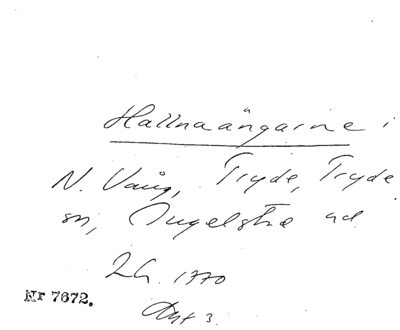 Hallnaängarne i
N. Vång, Tryde, Tryde
sn, Ingelstad hd
LA. 1770
Akt 3
Nr 7672.